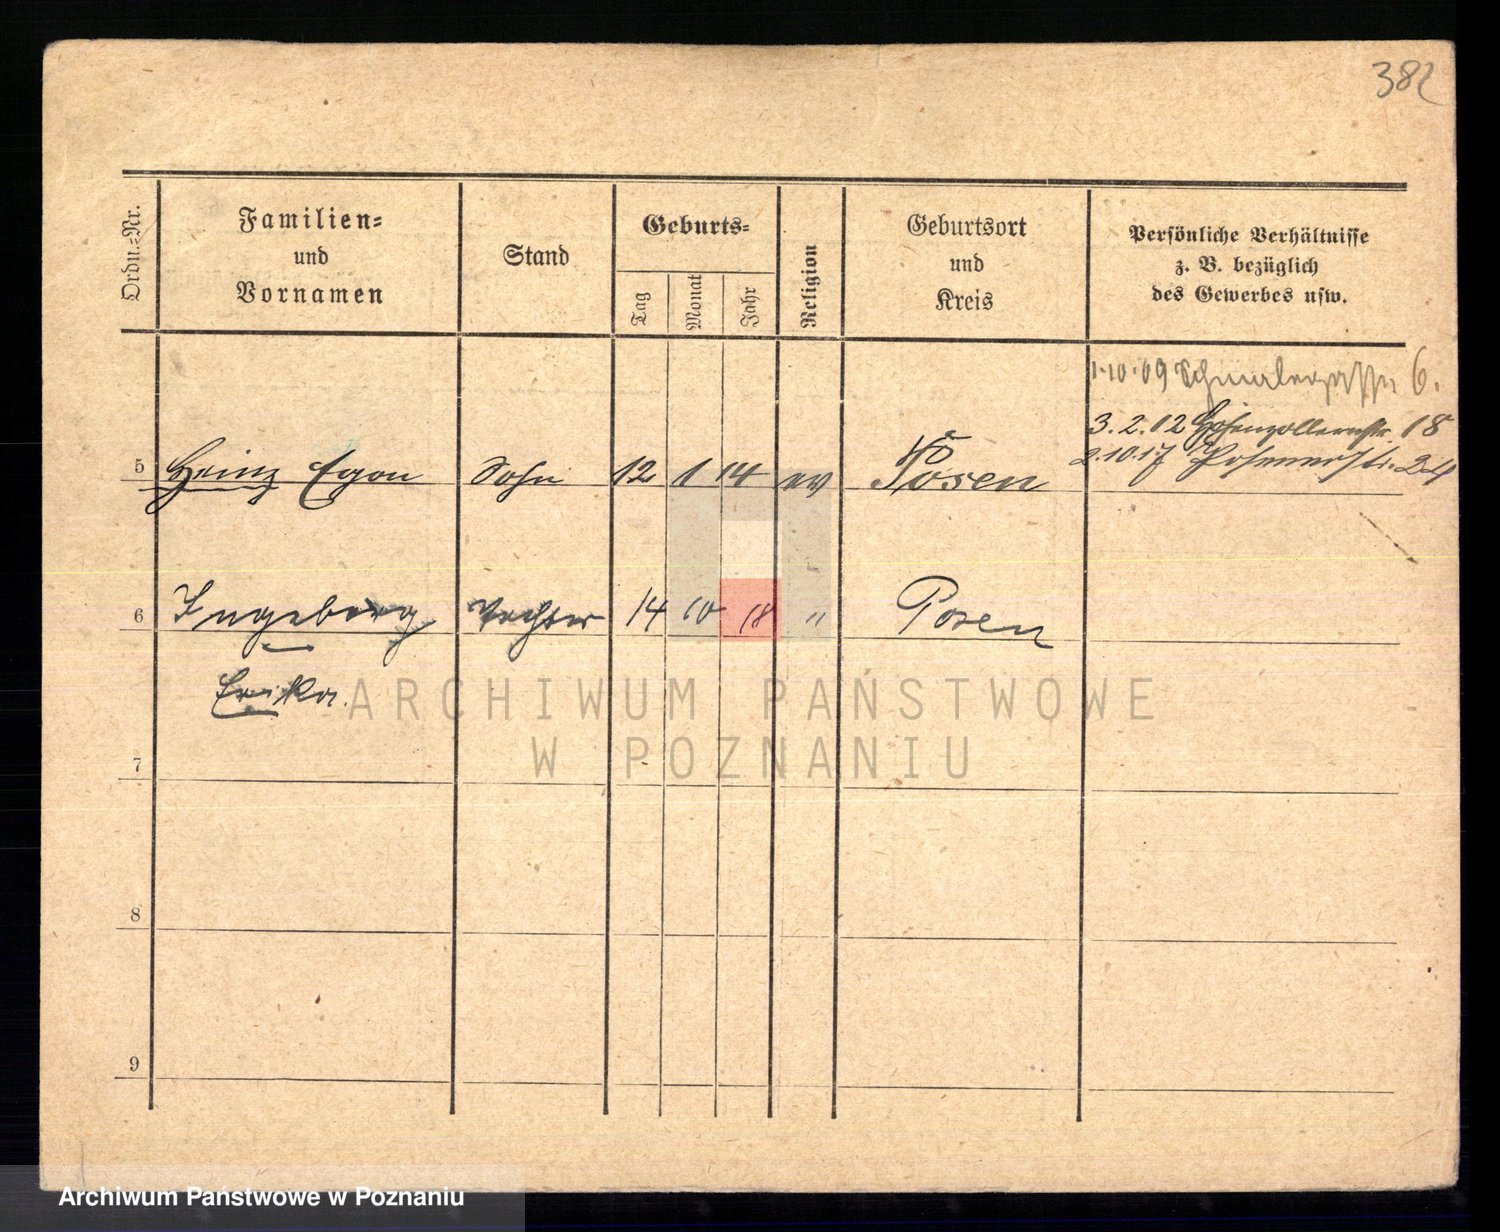 382
Ordn.=Nr.
Familien=
und
Vornamen
Stand
Geburts=
Tag
Monat
Jahr
Religion
Geburtsort
und
Kreis
Persönliche Verhältnisse
z. B. bezüglich
des Gewerbes usw.
1.10.09 6.
3.2.12 Hohenzollernstr. 18
2.10.17 Posenerstr. 24
5 Heinz Egon Sohn 12 1 14 ev Posen
6 Ingeborg Tochter 14 10 18 " Posen
Erika.
ARCHIWUM PAŃSTWOWE
W POZNANIU
7
8
9
Archiwum Państwowe w Poznaniu